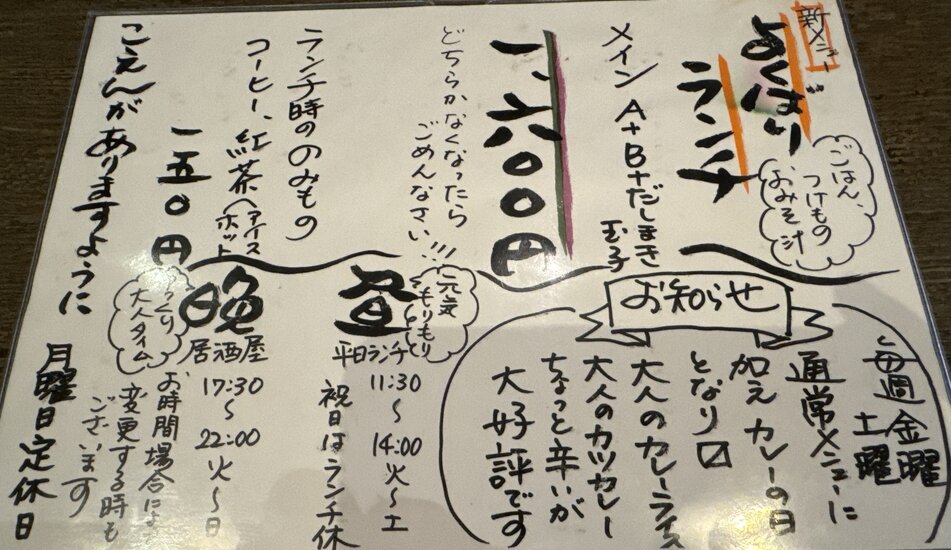 新メニュー
よくばり
ランチ
ごはん、
つけもの
おみそ汁
メイン A+B+だしまき
玉子
一、六〇〇円
どちらかなくなったら
ごめんなさい!!!
ランチ時ののみもの
コーヒー、紅茶(アイス
ホット
一五〇円
こえんがありますように
お知らせ
毎週金曜
土曜
通常メニューに
加え カレーの日
となり〼
大人のカレーライス
大人のカツカレー
ちょっと辛いが
大好評です
元気
もりもり
昼
平日ランチ
11:30
〜
14:00
火〜土
祝日はランチ休
晩
居酒屋
17:30
〜
22:00
火〜日
大人タイム
お時間場合により
変更する時も
ございます
月曜日定休日